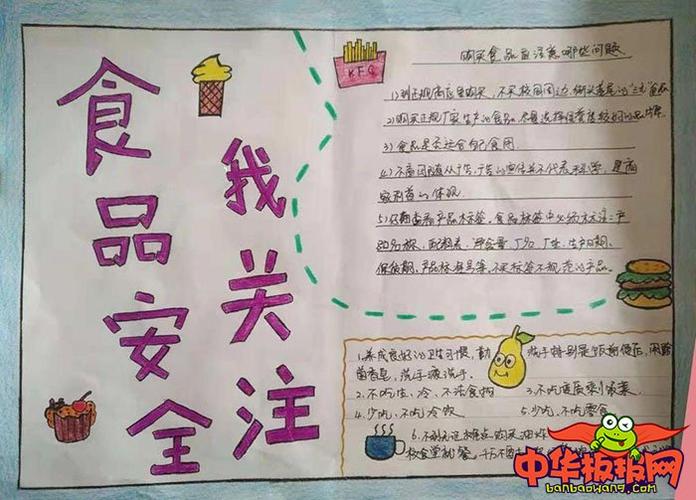 食品安全
我关注
KFC
购买食品应注意哪些问题
1)到正规商店里购买，不买校园周边、街头巷尾的"三无"食品
2)购买正规厂家生产的食品，尽量选择信誉度较好的品牌
3)食品是否适合自己食用
4)不盲目随从广告，广告的宣传并不代表科学，是商
家利益的体现
5)仔细查看产品标签，食品标签中必须标注：产
品名称、配料表、净含量、厂名、厂址、生产日期、
保质期、产品标准号等，不买标签不规范的产品。
1.养成良好的卫生习惯，勤洗手特别是饭前便后，用除
菌香皂、洗手液洗手。
2.不吃生、冷、不洁食物 3.不吃变质剩饭菜
4.少吃、不吃冷饮 5.少吃、不吃零食
6.不到无证摊点购买油炸
校食堂就餐，
中华板报网
banbaowang.com